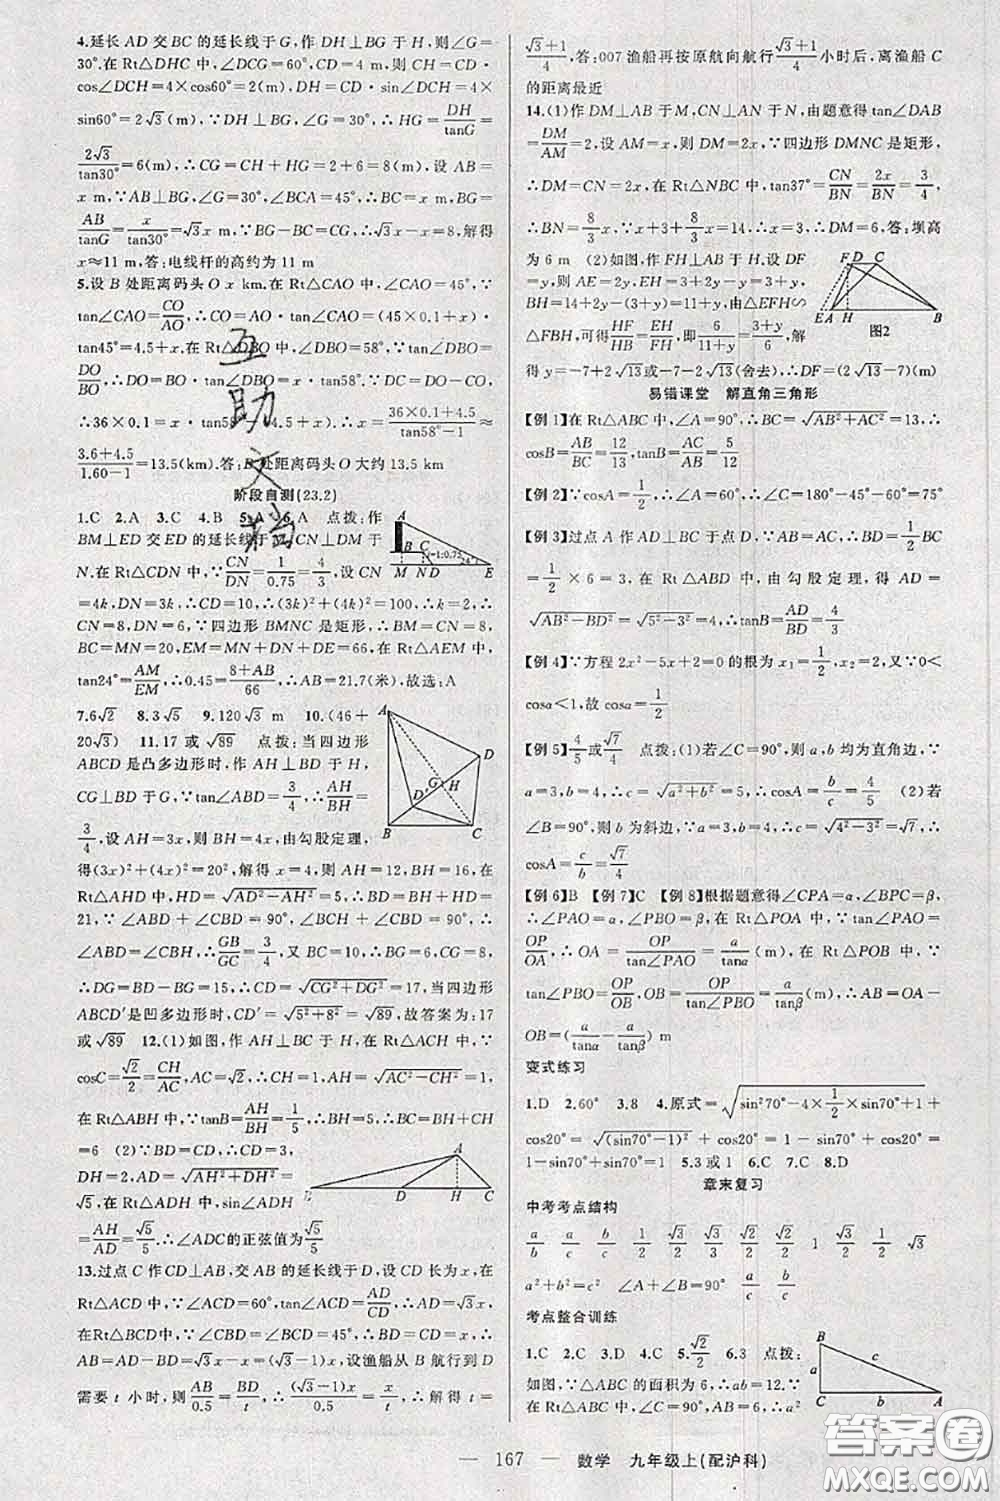 4.延长 AD 交 BC 的延长线于 G,作 DH⊥BG 于 H,则∠G=
30°.在 Rt△DHC 中,∠DCG=60°,CD=4 m,则 CH=CD·
cos∠DCH=4×cos60°=2(m),DH=CD·sin∠DCH=4×
sin60°=2√3(m),∵DH⊥BG,∠G=30°,∴HG=DH/tanG=
2√3/tan30°=6(m),∴CG=CH+HG=2+6=8(m),设 AB=
x m,∵AB⊥BG,∠G=30°,∠BCA=45°,∴BC=x m,BG=
AB/tanG=x/tan30°=√3x m,∵BG-BC=CG,∴√3x-x=8,解得
x≈11 m,答:电线杆的高约为 11 m
5.设 B 处距离码头 O x km.在 Rt△CAO 中,∠CAO=45°,∵
tan∠CAO=CO/AO,∴CO=AO·tan∠CAO=(45×0.1+x)·
tan45°=4.5+x,在 Rt△DBO 中,∠DBO=58°,∵tan∠DBO=
DO/BO,∴DO=BO·tan∠DBO=x·tan58°.∵DC=DO-CO,
∴36×0.1=x·tan58°-(4.5+x),∴x=(36×0.1+4.5)/(tan58°-1)≈
(3.6+4.5)/(1.60-1)=13.5(km).答:B 处距离码头 O 大约 13.5 km
阶段自测(23.2)
1.C 2.A 3.C 4.B 5.A 6.A 点拨:作
BM⊥ED 交 ED 的延长线于 M,CN⊥DM 于
N.在 Rt△CDN 中,∵CN/DN=1/0.75=4/3,设 CN
=4k,DN=3k,∴CD=10,∴(3k)²+(4k)²=100,∴k=2,∴
CN=8,DN=6,∵四边形 BMNC 是矩形,∴BM=CN=8,
BC=MN=20,EM=MN+DN+DE=66,在 Rt△AEM 中,
tan24°=AM/EM,∴0.45=(8+AB)/66,∴AB=21.7(米),故选:A
7.6√2 8.3√5 9.120√3 m 10.(46+
20√3) 11.17 或√89 点拨:当四边形
ABCD 是凸多边形时,作 AH⊥BD 于 H,
CG⊥BD 于 G,∵tan∠ABD=3/4,∴AH/BH=
3/4,设 AH=3x,则 BH=4x,由勾股定理,
得(3x)²+(4x)²=20²,解得 x=4,则 AH=12,BH=16,在
Rt△AHD 中,HD=√(AD²-AH²)=5,∴BD=BH+HD=
21,∵∠ABD+∠CBD=90°,∠BCH+∠CBD=90°,∴
∠ABD=∠CBH,∴GB/GC=3/4,又 BC=10,∴BG=6,CG=8,
∴DG=BD-BG=15,∴CD=√(CG²+DG²)=17,当四边形
ABCD′是凹多边形时,CD′=√(5²+8²)=√89,故答案为:17
或√89 12.(1)如图,作 AH⊥BC 于 H,在 Rt△ACH 中,∵
cosC=√2/2=CH/AC,AC=√2,∴CH=1,AH=√(AC²-CH²)=1,
在 Rt△ABH 中,∵tanB=AH/BH=1/5,∴BH=5,∴BC=BH+CH
=6 (2)∵BD=CD,∴CD=3,
DH=2,AD=√(AH²+DH²)=
√5.在 Rt△ADH 中,sin∠ADH
=AH/AD=√5/5.∴∠ADC的正弦值为√5/5
13.过点 C 作 CD⊥AB,交 AB 的延长线于 D,设 CD 长为 x,在
Rt△ACD 中,∵∠ACD=60°,tan∠ACD=AD/CD,∴AD=√3x,
在Rt△BCD中,∵∠CBD=∠BCD=45°,∴BD=CD=x,∴
AB=AD-BD=√3x-x=(√3-1)x,设渔船从 B 航行到 D
需要 t 小时,则AB/0.5=BD/t,∴(√3-1)x/0.5=x/t,∴解得 t=
(√3+1)/4,答:007渔船再按原航向航行(√3+1)/4小时后,离渔船 C
的距离最近
14.(1)作 DM⊥AB 于 M,CN⊥AN 于 N,由题意得 tan∠DAB
=DM/AM=2,设 AM=x,则 DM=2x,∵四边形 DMNC 是矩形,
∴DM=CN=2x,在 Rt△NBC 中,tan37°=CN/BN=2x/BN=3/4,
∴BN=8/3x,∵x+3+8/3x=14,∴x=3,∴DM=6,答:坝高
为 6 m (2)如图,作 FH⊥AB 于 H,设 DF
=y,则 AE=2y,EH=3+2y-y=3+y,
BH=14+2y-(3+y)=11+y,由△EFH∽
△FBH,可得HF/HB=EH/FH,即6/(11+y)=(3+y)/6,解
得 y=-7+2√13或-7-2√13(舍去),∴DF=(2√13-7)(m)
易错课堂 解直角三角形
【例 1】在 Rt△ABC 中,∠A=90°,∴BC=√(AB²+AC²)=13,∴
cosB=AB/BC=12/13,tanB=AC/AB=5/12
【例 2】∵cosA=1/2,∴∠A=60°,∴∠C=180°-45°-60°=75°
【例 3】过点 A 作 AD⊥BC 于点 D,∵AB=AC,∴BD=1/2BC
=1/2×6=3,在 Rt△ABD 中,由勾股定理,得 AD=
√(AB²-BD²)=√(5²-3²)=4,∴tanB=AD/BD=4/3
【例 4】∵方程 2x²-5x+2=0的根为 x₁=1/2,x₂=2,又∵0<
cosα<1,故 cosα=1/2
【例 5】4/5或√7/4 点拨:(1)若∠C=90°,则a,b 均为直角边,∵
a=3,b=4,∴c=√(a²+b²)=5,∴cosA=b/c=4/5 (2)若
∠B=90°,则 b 为斜边,∵a=3,b=4,∴c=√(4²-3²)=√7,∴
cosA=c/b=√7/4
【例 6】B 【例 7】C 【例 8】根据题意得∠CPA=α,∠BPC=β,
∴∠PAO=α,∠PBO=β,在 Rt△POA 中,∵tan∠PAO=
OP/OA,∴OA=OP/tan∠PAO=a/tanα(m),在 Rt△POB 中,∵
tan∠PBO=OP/OB,∴OB=OP/tan∠PBO=a/tanβ(m),∴AB=OA-
OB=(a/tanα-a/tanβ) m
变式练习
1.D 2.60° 3.8 4.原式=√(sin²70°-4×1/2×sin70°+1)+
cos20°=√((sin70°-1)²)+cos20°=1-sin70°+cos20°=
1-sin70°+sin70°=1 5.3 或 1 6.C 7.C 8.D
章末复习
中考考点结构
a/b a/c b/c 1/2 √3/2 √3/3 √2/2 √2/2 1 √3/2 1/2 √3
a²+b²=c² ∠A+∠B=90° a/c b/c
考点整合训练
1.C 2.C 3.D 4.C 5.√2/2 6.3 点拨:
如图,∵△ABC 的面积为 6,∴ab=12.∵
在 Rt△ABC 中,∠C=90°,AB=5,∴a²
图2
互
助
文
档
— 167 — 数学 九年级上(配沪科)
答案圈
MXQE.COM